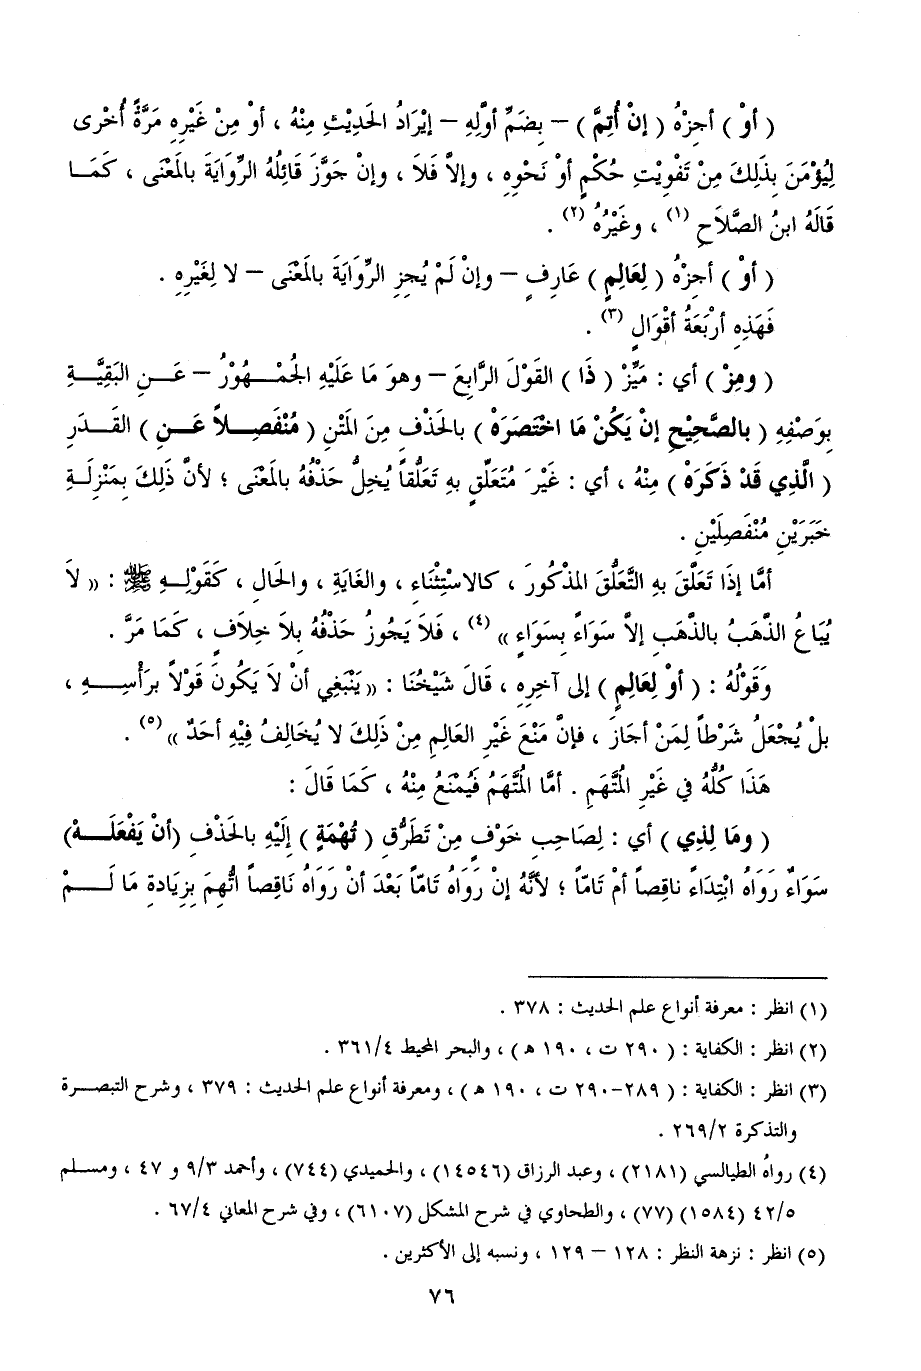 ( أوْ ) أجِزْهُ ( إنْ أُتِمَّ ) – بِضَمِّ أوَّلِهِ – إيْرَادُ الحَدِيْثِ مِنْهُ ، أوْ مِنْ غَيْرِهِ مَرَّةً أُخْرى
لِيُؤْمَنَ بِذَلِكَ مِنْ تَفْوِيْتِ حُكْمٍ أوْ نَحْوِهِ ، وإلاَّ فَلاَ ، وإنْ جَوَّزَ قَائِلُهُ الرِّوَايَةَ بالمَعْنَى ، كَمَـا
قَالَهُ ابنُ الصَّلاَحِ (١) ، وغَيْرُهُ (٢) .
( أوْ ) أجِزْهُ ( لِعَالِمٍ ) عَارِفٍ – وإنْ لَمْ يُجِزِ الرِّوَايَةَ بالمَعْنَى – لا لِغَيْرِهِ .
فَهَذِهِ أرْبَعَةُ أقْوَالٍ (٣) .
( ومِزْ ) أي : مَيِّزْ ( ذَا ) القَوْلَ الرَّابِعَ – وهوَ مَا عَلَيْهِ الجُمْـهُوْرُ – عَـنِ البَقِيَّـةِ
بِوَصْفِهِ ( بالصَّحِيْحِ إنْ يَكُنْ مَا اخْتَصَرَهْ ) بالحَذْفِ مِنَ المَتْنِ ( مُنْفَصِـلاً عَـنِ ) القَـدَرِ
( الَّذِي قَدْ ذَكَرَهْ ) مِنْهُ ، أي : غَيْرَ مُتَعَلِّقٍ بِهِ تَعَلُّقاً يُخِلُّ حَذْفُهُ بالمَعْنَى ؛ لأنَّ ذَلِكَ بِمَنْزِلَـةِ
خَبَرَيْنِ مُنْفَصِلَيْنِ .
أمَّا إذَا تَعَلَّقَ بِهِ التَّعَلُّقَ المَذْكُورَ ، كالاسْتِثْنَاءِ ، والغَايَةِ ، والحَالِ ، كَقَوْلِـهِ ﷺ : (( لاَ
يُبَاعُ الذَّهَبُ بالذَّهَبِ إلاَّ سَوَاءً بِسَوَاءٍ )) (٤) ، فَلاَ يَجُوزُ حَذْفُهُ بِلاَ خِلاَفٍ ، كَمَا مَرَّ .
وَقَوْلُهُ : ( أوْ لِعَالِمٍ ) إلى آخِرِهِ ، قَالَ شَيْخُنَا : (( يَنْبَغِي أنْ لاَ يَكُونَ قَوْلاً بِرَأْسِـهِ ،
بلْ يُجْعَلُ شَرْطاً لِمَنْ أجَازَ ، فإنَّ مَنْعَ غَيْرِ العَالِمِ مِنْ ذَلِكَ لا يُخَالِفُ فِيْهِ أحَدٌ )) (٥) .
هَذَا كُلُّهُ في غَيْرِ المُتَّهَمِ . أمَّا المُتَّهَمُ فَيُمْنَعُ مِنْهُ ، كَمَا قَالَ :
( ومَا لِذِي ) أي : لِصَاحِبِ خَوْفٍ مِنْ تَطَرُّقِ ( تُهْمَةٍ ) إلَيْهِ بالحَذْفِ (أنْ يَفْعَلَـهْ)
سَوَاءٌ رَوَاهُ ابْتِدَاءً نَاقِصاً أمْ تَامّاً ؛ لأنَّهُ إنْ رَوَاهُ تَامّاً بَعْدَ أنْ رَوَاهُ نَاقِصاً اتُّهِمَ بِزِيَادةِ مَا لَـمْ
(١) انظر : معرفة أنواع علم الحديث : ٣٧٨ .
(٢) انظر : الكفاية : ( ٢٩٠ ت ، ١٩٠ هـ ) ، والبحر المحيط ٣٦١/٤ .
(٣) انظر : الكفاية : ( ٢٨٩-٢٩٠ ت ، ١٩٠ هـ ) ، ومعرفة أنواع علم الحديث : ٣٧٩ ، وشرح التبصـرة
والتذكرة ٢٦٩/٢ .
(٤) رواهُ الطيالسي (٢١٨١) ، وعبد الرزاق (١٤٥٤٦) ، والحميدي (٧٤٤) ، وأحمد ٩/٣ و ٤٧ ، ومسـلم
٤٢/٥ (١٥٨٤) (٧٧) ، والطحاوي في شرح المشكل (٦١٠٧) ، وفي شرح المعاني ٦٧/٤ .
(٥) انظر : نزهة النظر : ١٢٨ – ١٢٩ ، ونسبه إلى الأكثرين .
٧٦